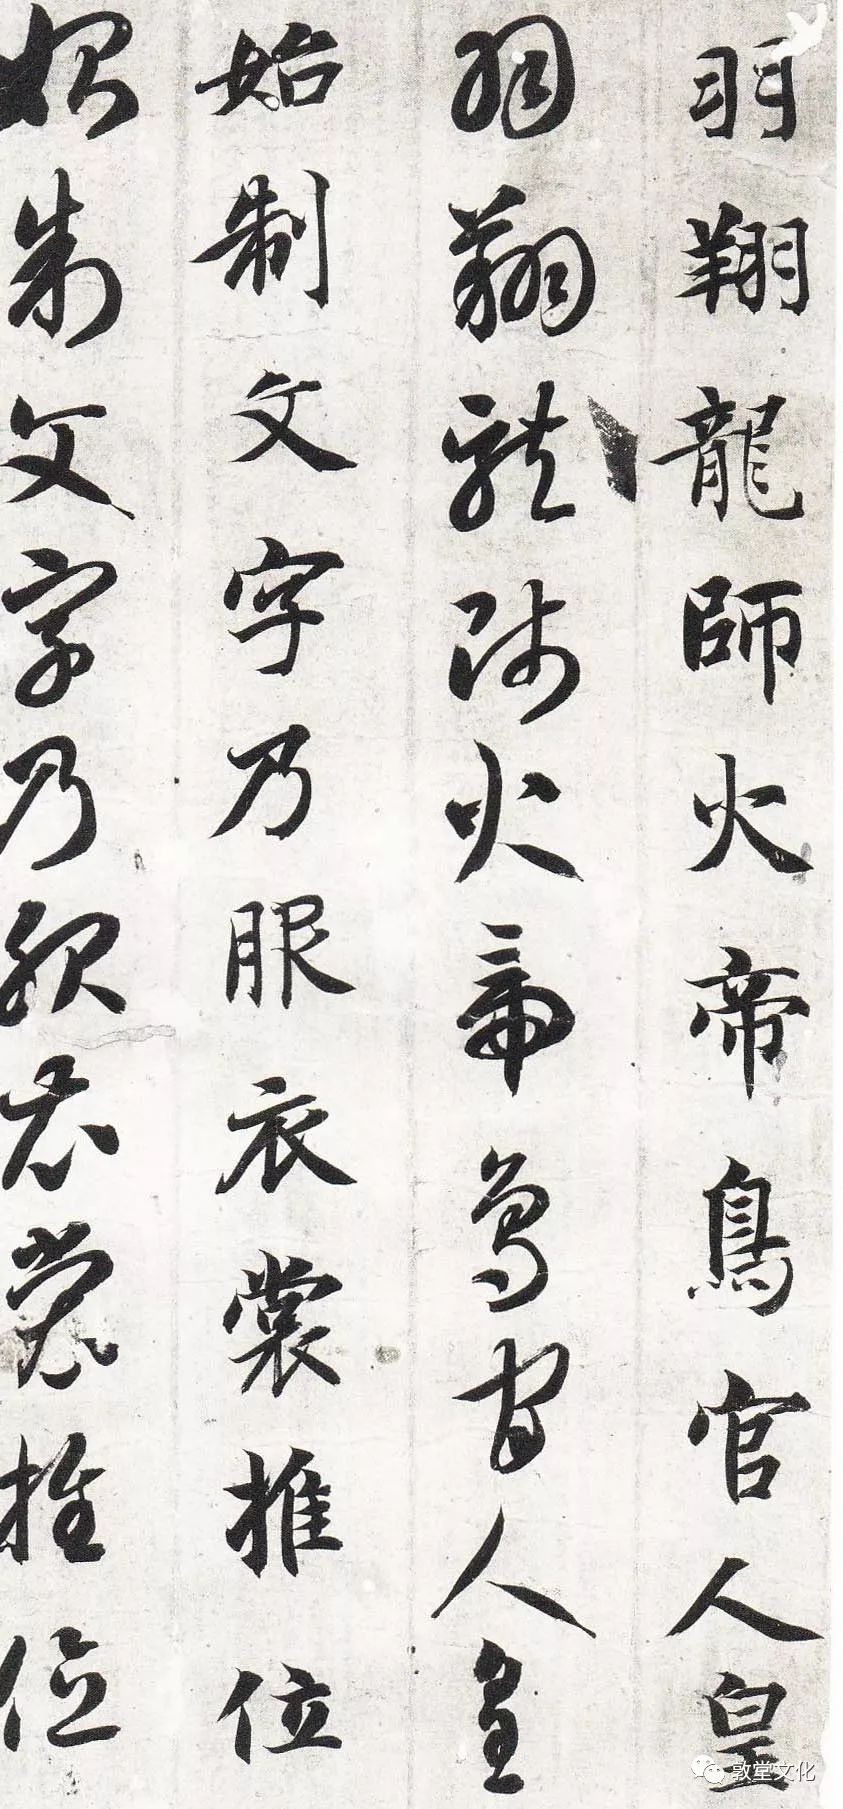 羽翔龍師火帝鳥官人皇
羽翔龍師火帝鳥官人皇
始制文字乃服衣裳推位
始制文字乃服衣裳推位
敦堂文化